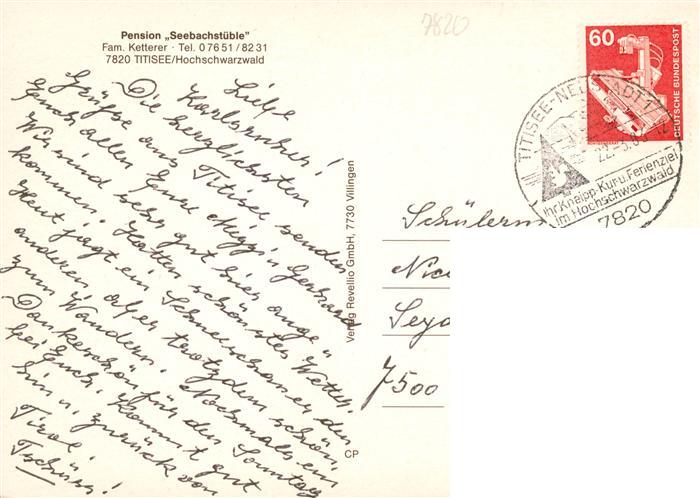 7820
Pension „Seebachstüble"
Fam. Ketterer · Tel. 0 76 51 / 82 31
7820 TITISEE/Hochschwarzwald
60
DEUTSCHE BUNDESPOST
TITISEE-NEUSTADT 1
Ihr Kneipp-Kur u. Ferienziel
im Hochschwarzwald
7820
Liebe
Karlsruher!
Die herzlichsten
Grüße aus Titisee senden
Euch allen Eure Meggi u. Gerhard
Wir sind sehr gut hier ange-
kommen. Hatten schönstes Wetter.
Heut jagt ein Schneeschauer den
anderen, aber trotzdem schön,
zum Wandern. Nochmals ein
Dankeschön für den Sonntag
bei Euch. Kommt gut
hin u. zurück von
Tirol
Tschüss!
Verlag Revellio GmbH, 7730 Villingen
CP
Schülerm
Nic
Seyd
7500